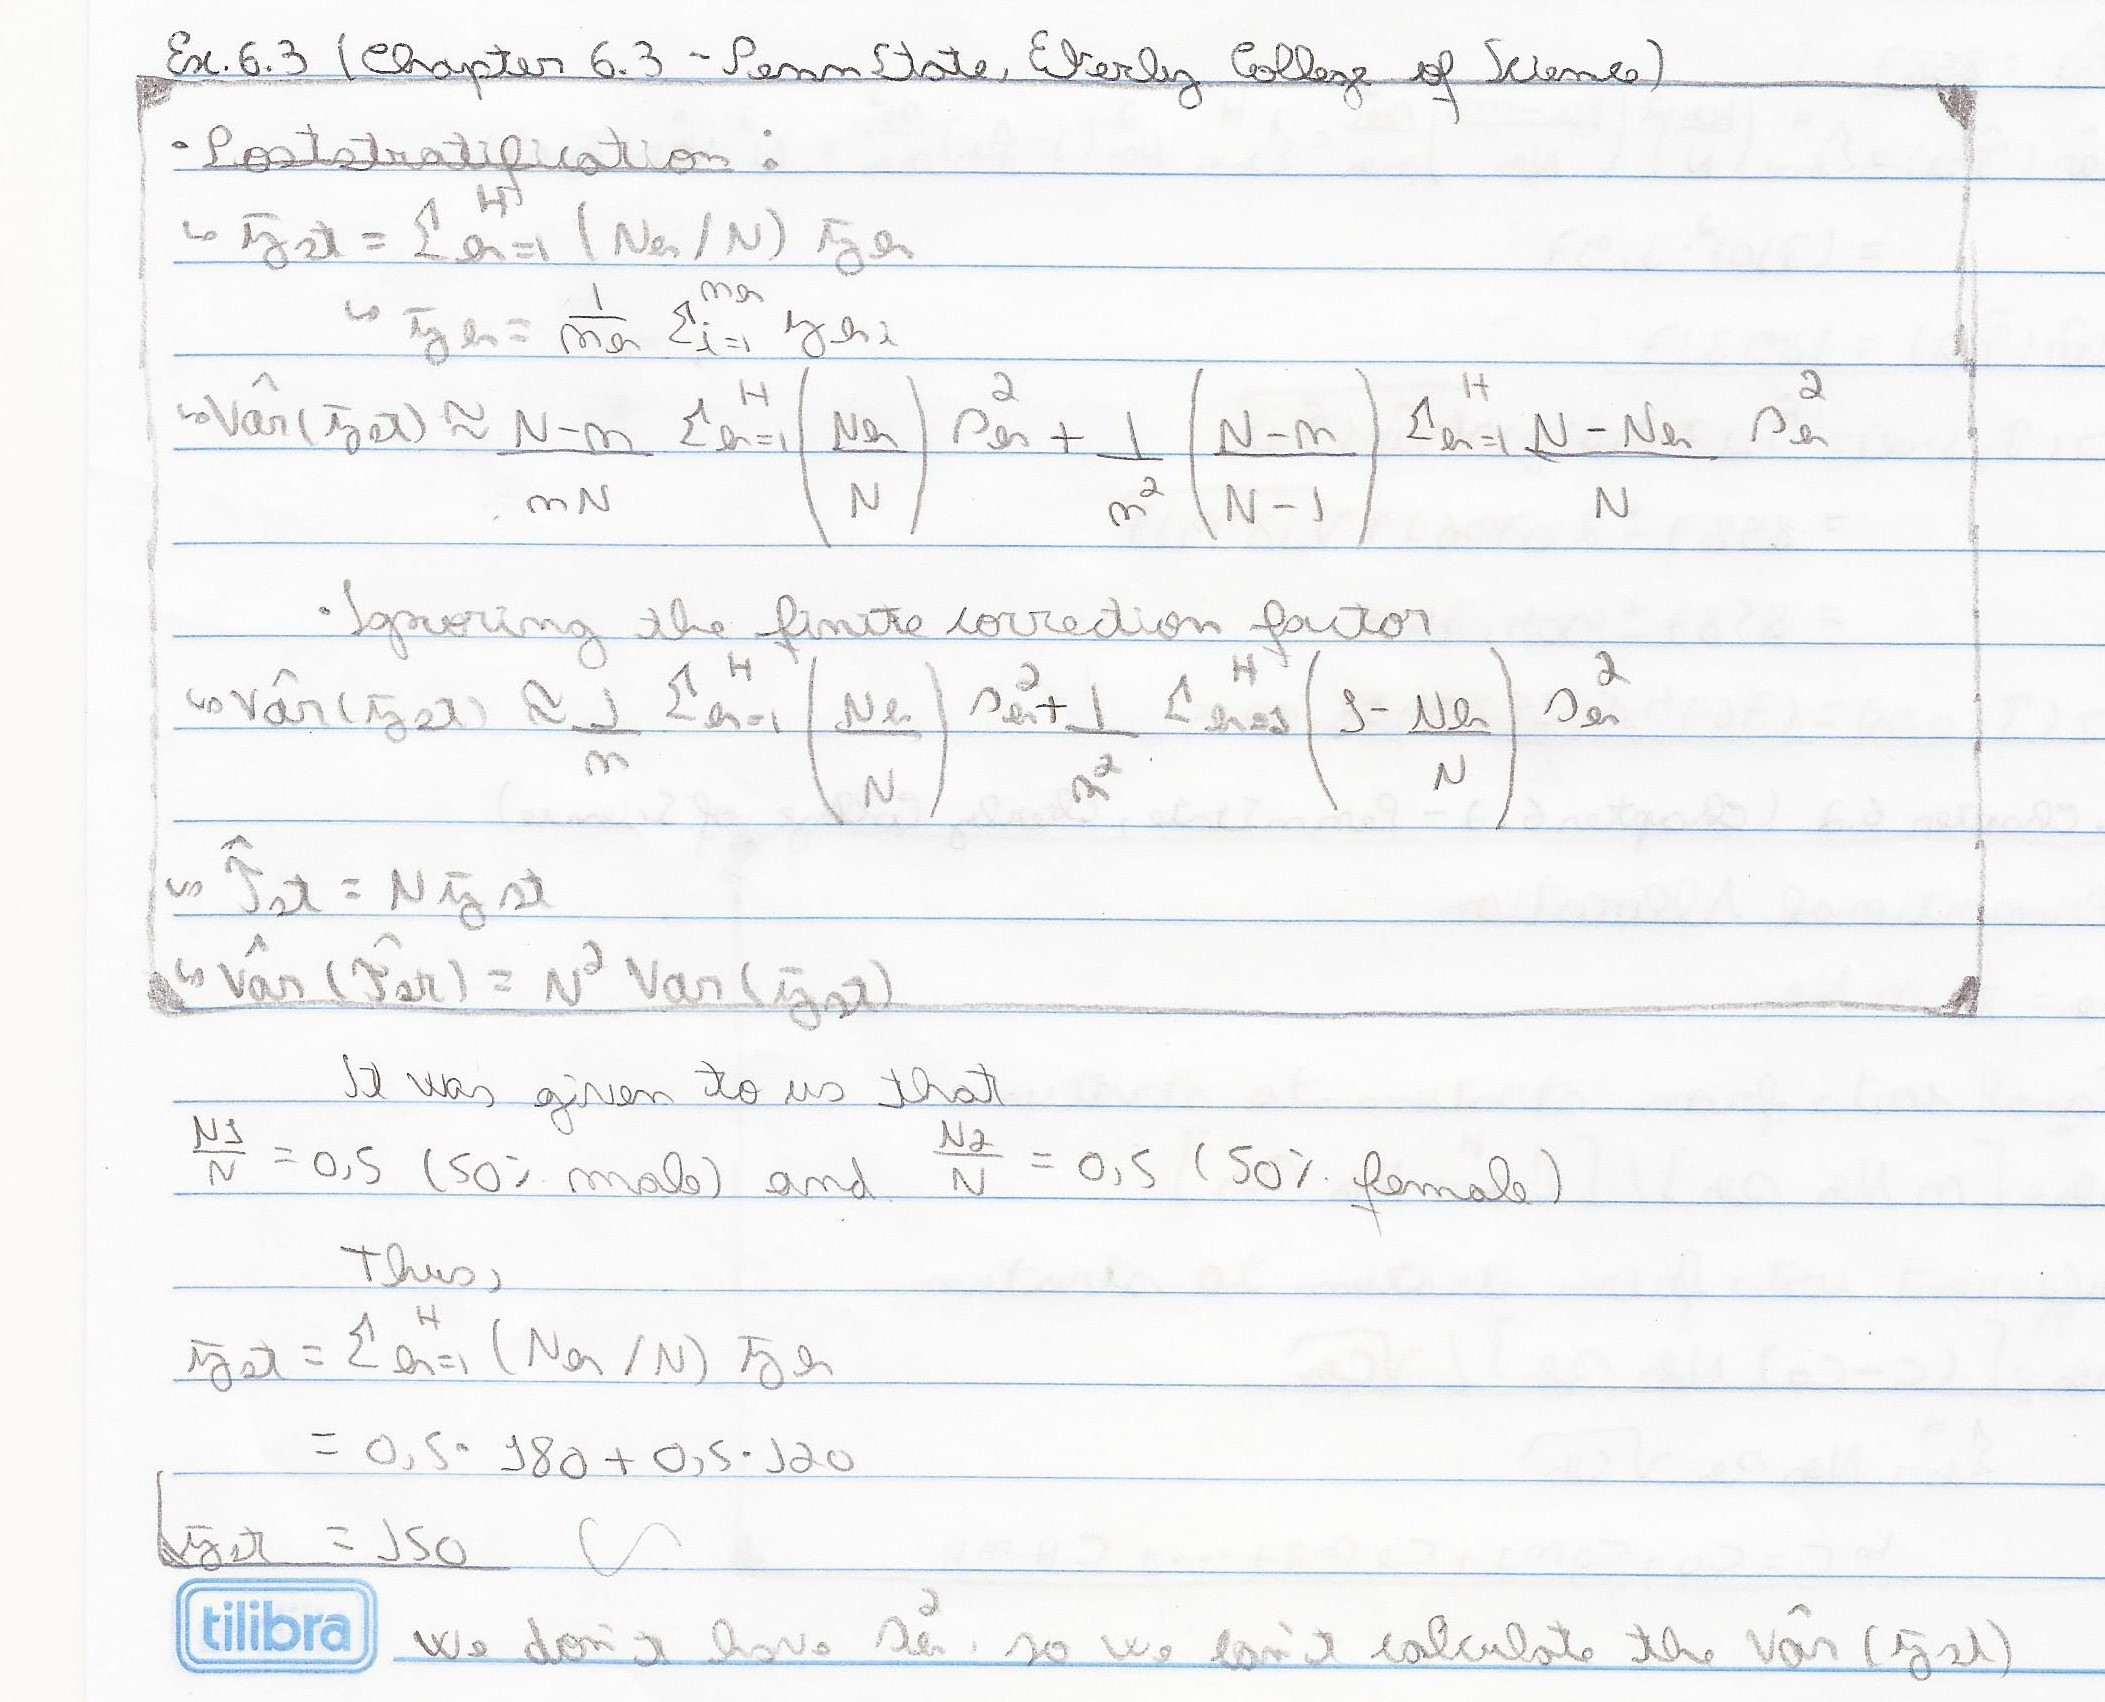 Ex. 6.3 (Chapter 6.3 - Penn State, Eberly College of Science)
• Poststratification:
↳ ȳst = Σ_{h=1}^{H} (Nh/N) ȳh
↳ ȳh = 1/nh Σ_{i=1}^{nh} yhi
↳ Vâr(ȳst) ≈ N-n/nN Σ_{h=1}^{H} (Nh/N) sh² + 1/n² (N-n/N-1) Σ_{h=1}^{H} N-Nh/N sh²
• Ignoring the finite correction factor
↳ Vâr(ȳst) ≈ 1/n Σ_{h=1}^{H} (Nh/N) sh² + 1/n² Σ_{h=1}^{H} (1 - Nh/N) sh²
↳ T̂st = Nȳst
↳ Vâr(T̂st) = N² Var(ȳst)
It was given to us that
N1/N = 0,5 (50% male) and N2/N = 0,5 (50% female)
Thus,
ȳst = Σ_{h=1}^{H} (Nh/N) ȳh
= 0,5 · 180 + 0,5 · 120
ȳst = 150
tilibra
We don't have sh², so we can't calculate the Vâr(ȳst)